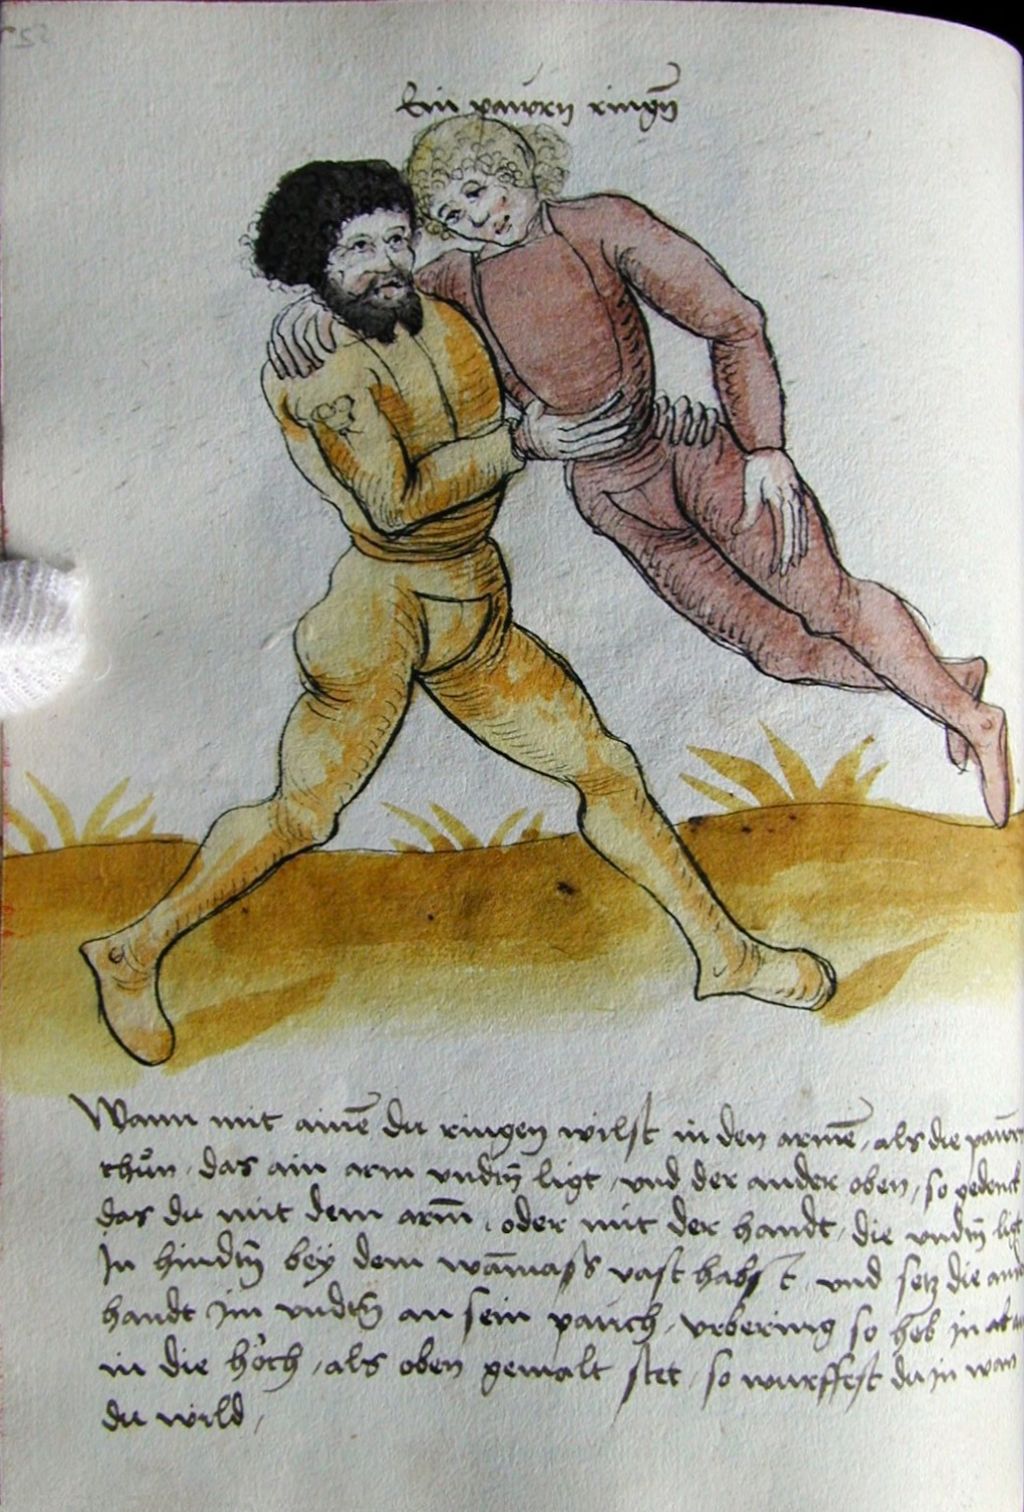 Ein pawrn ringn̄
Wann mit ainē du ringen wilst in den armē, als die pawrn
thůn, das ain arm vndn̄ ligt, vnd der ander oben, so gedenck
das du mit dem arm̄, oder mit der handt, die vndn̄ ligt
In hindn̄ bey dem wam̄ass vast habst, vnd setz die
handt Im vndn̄ an sein pauch, vrbering so heb in
in die höch, als oben gemalt stet, so wurffest du in wan
du wild,